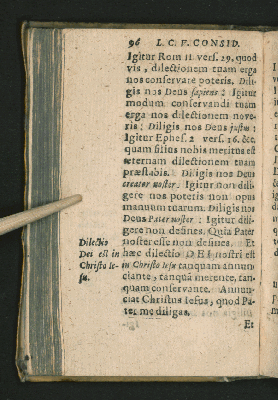 96 L. C. F. CONSID.
Igitur Rom 11 vers. 29, quod
vis, dilectionem tuam erga
nos conservare poteris. Dili-
gis nos Deus sapiens: Igitur
modum conservandi tuam
erga nos dilectionem nove-
ris: Diligis nos Deus justus:
Igitur Ephes. 2 vers. 16. &c.
quam filius nobis meritus est
æternam dilectionem tuam
præstabis. Diligis nos Deus
creator noster. Igitur non dili-
gere nos poteris non opus
manuum tuarum. Diligis nos
Deus Pater noster: Igitur dili-
gere non desines. Quia Pater
noster esse non desines. Et
hæc dilectio DEI nostri est
in Christo Iesu tanquam annun-
ciante, tanquã merente, tan-
quam conservante. Annun-
ciat Christus Iesus, quod Pa-
ter me diligas.
Et
Dilectio
Dei est in
Christo Ie-
su.